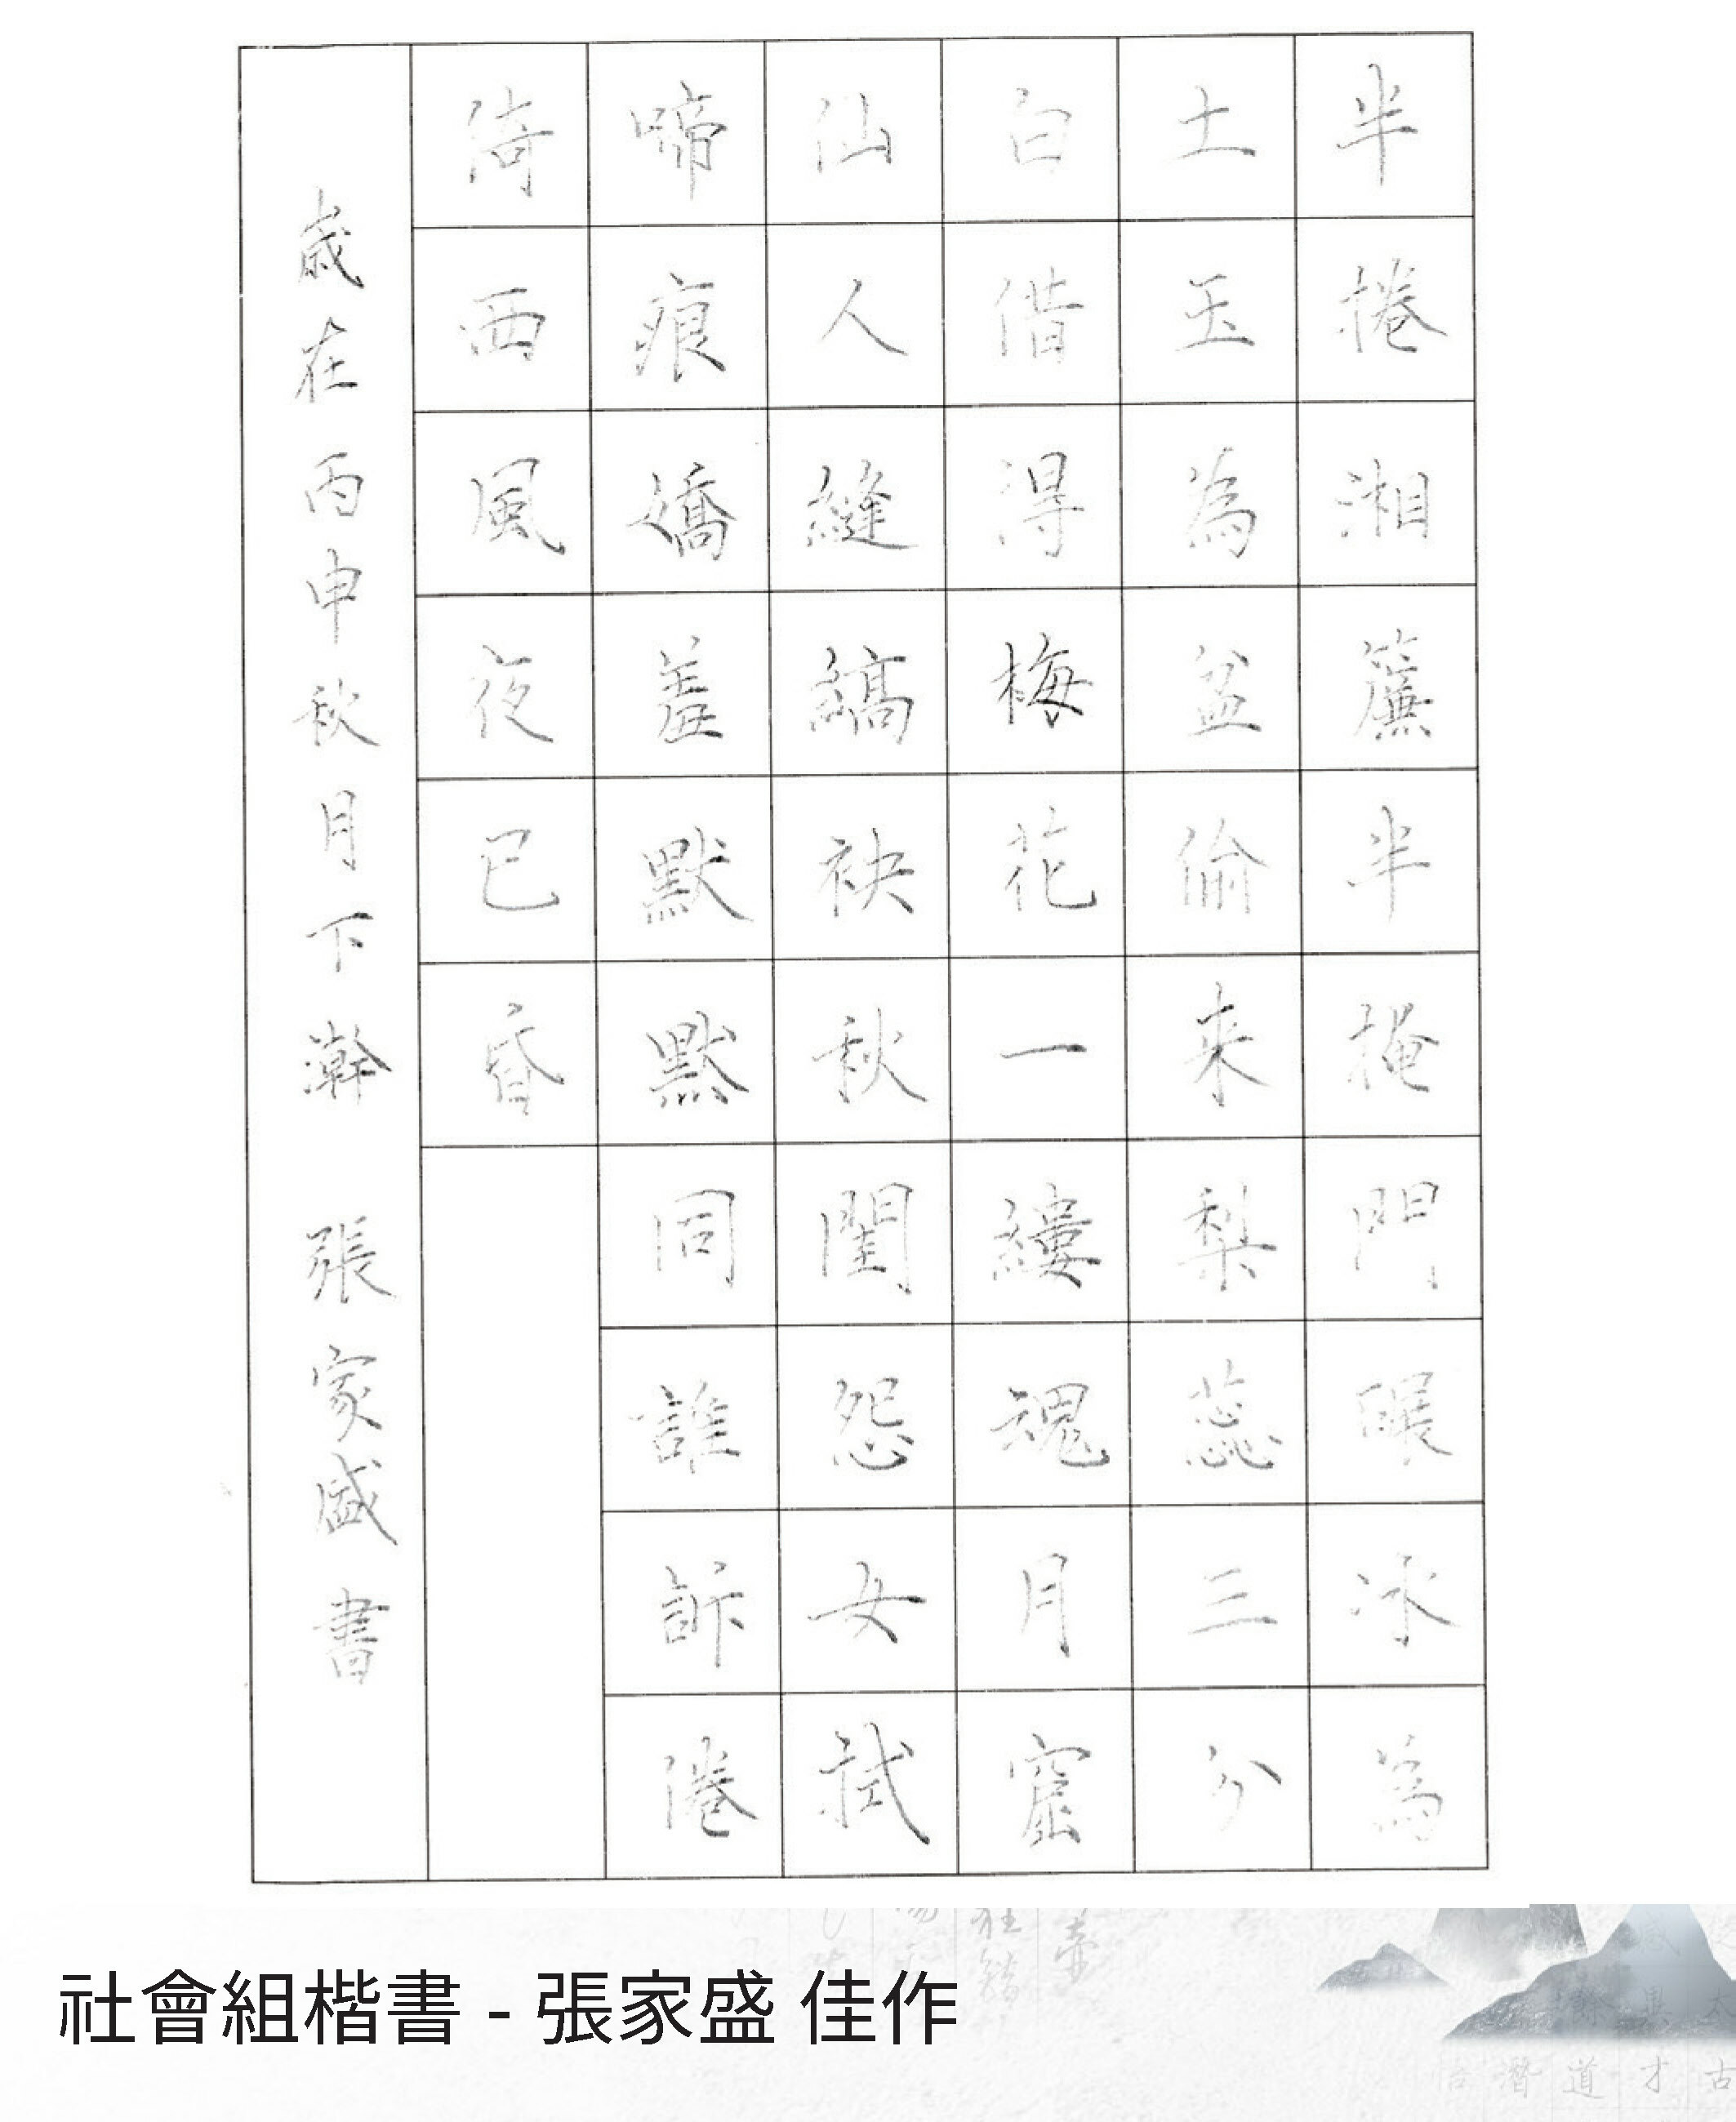 半捲湘簾半掩門碾冰為
土玉為盆偷来梨蕊三分
白借得梅花一縷魂月窟
仙人縫縞袂秋閨怨女拭
啼痕嬌羞默默同誰訴倦
倚西風夜已昏
歲在丙申秋月下澣 張家盛書
社會組楷書 - 張家盛 佳作